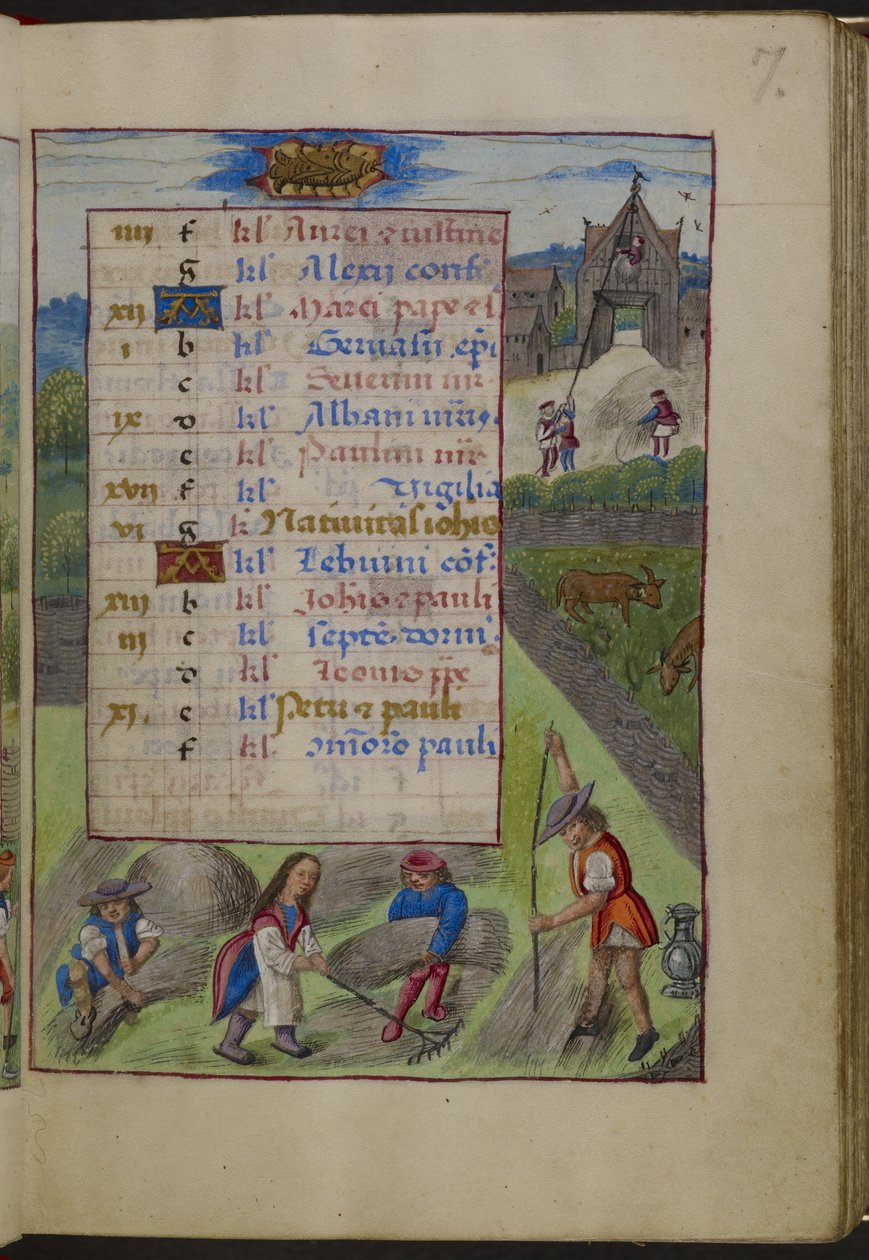 7.
iiij f kl' Aurei ⁊ iustine
g kl' Alexij conf'
xij A kl' Marci pape ⁊ f
i b kl' Geruasii epi
c kl' Seuerini mr'
ix d kl' Albani mris.
e kl' Paulini mr'
xvij f kl' Vigilia
vj g k' Natiuitas iohis
A kl' Lebuini cōf:
xiiij b kl' Johis ⁊ pauli
iij c kl' septē dormi.
d kl' Leonis ppe
xj. e kl' Petri ⁊ pauli
f kl'. pauli